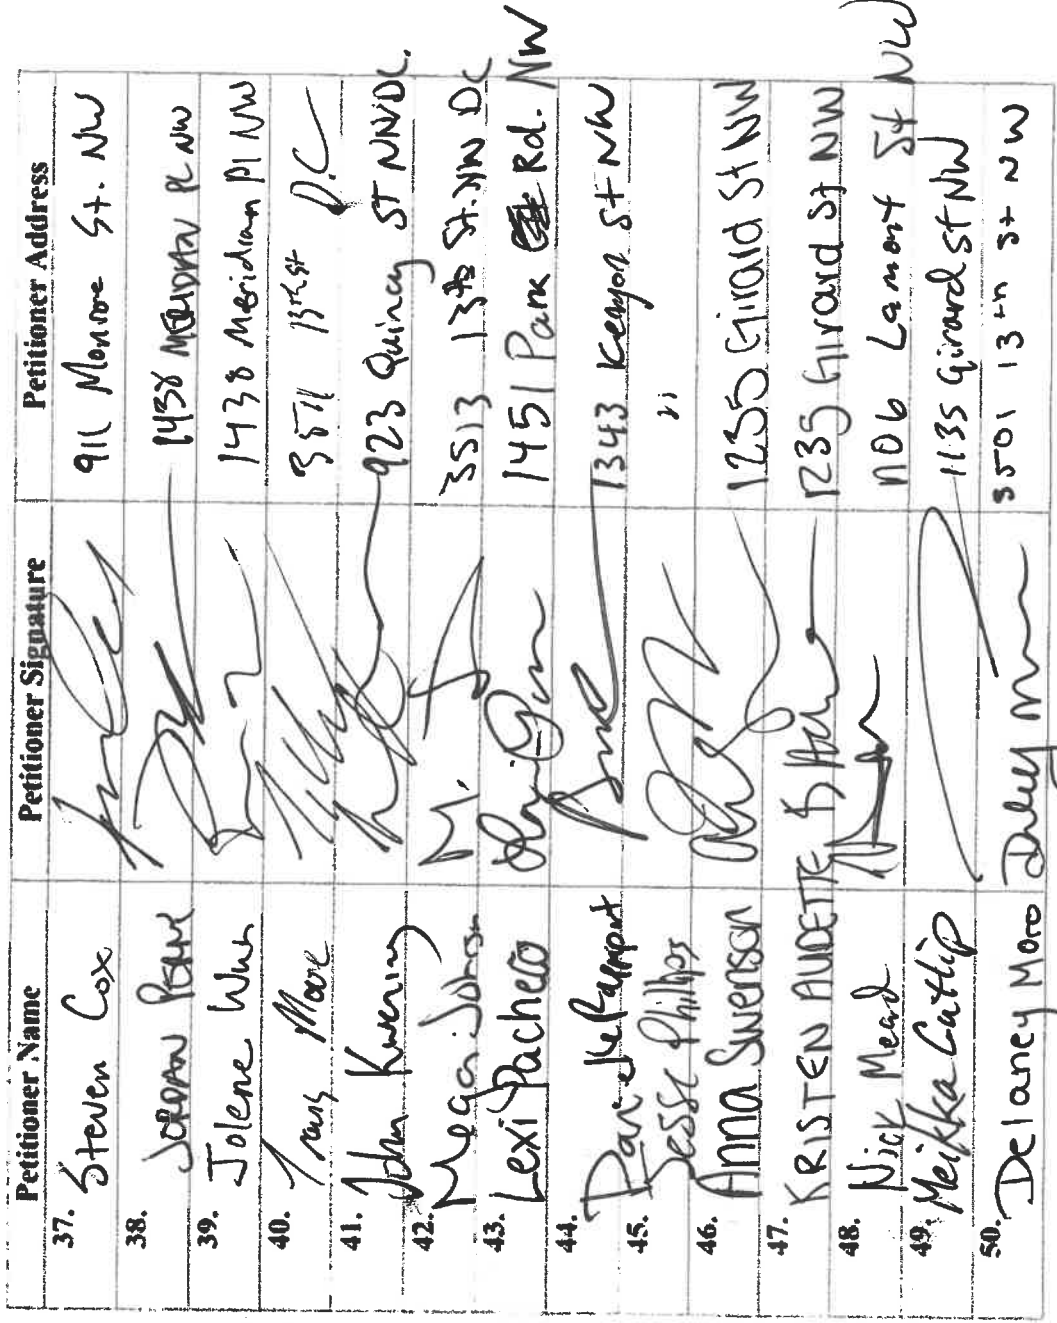 Petitioner Name Petitioner Signature Petitioner Address
37. Steven Cox 911 Monroe St. NW
38. JORDAN 1438 MERIDIAN PL NW
39. Jolene 1438 Meridian Pl NW
40. Moore 3511 13th St D.C
41. John 923 Quincy ST NW DC.
42. Megan 3513 13th St. NW DC
43. Lexi Pacheco 1451 Park Rd. NW
44. 1343 Kenyon St NW
45. Jesse Phillips "
46. Anna Swenson 1235 Girard St NW
47. KRISTEN AUDETTE 1235 Girard St NW
48. Nick Mead 1106 Lamont St NW
49. Meikka Cutlip 1135 Girard St NW
50. Delaney Moro 3501 13th St NW